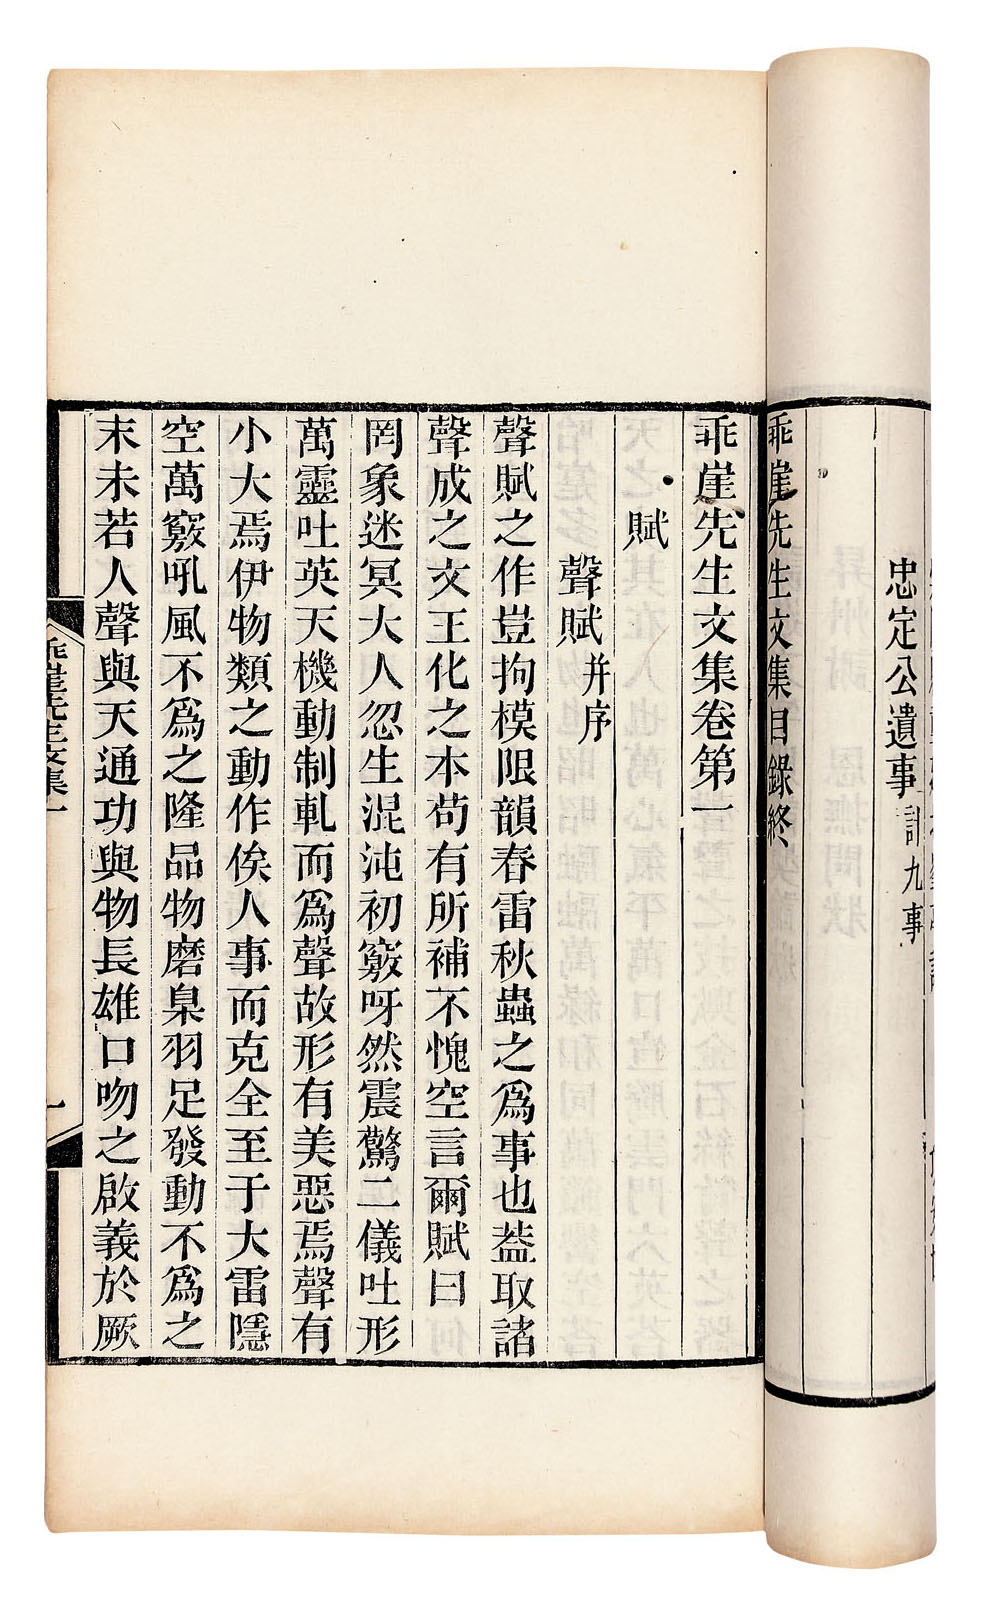 忠定公遺事計九事
乖崖先生文集目錄終
乖崖先生文集卷第一
賦
聲賦并序
聲賦之作豈拘模限韻春雷秋蟲之爲事也葢取諸
聲成之文王化之本苟有所補不愧空言爾賦曰
罔象迷冥大人忽生混沌初竅呀然震驚二儀吐形
萬靈吐英天機動制軋而爲聲故形有美惡焉聲有
小大焉伊物類之動作俟人事而克全至于大雷隱
空萬竅吼風不爲之隆品物磨臬羽足發動不爲之
末未若人聲與天通功與物長雄口吻之啟義於厥
乖崖先生文集一
一